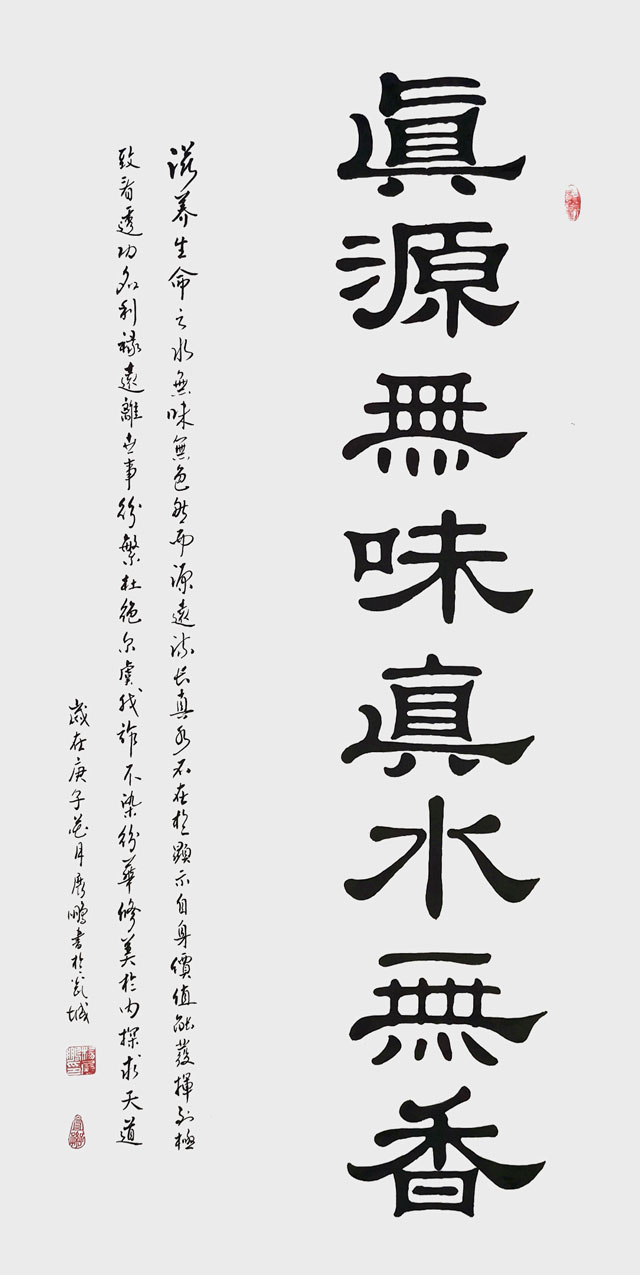 真源無味真水無香
滋养生命之水無味無色然而源遠流长真水不在於顯示自身價值能發揮到極
致看透功名利祿遠離世事紛繁杜绝尔虞我詐不染紛華修美於内探求天道
歲在庚子花月展鵬書於瓮城